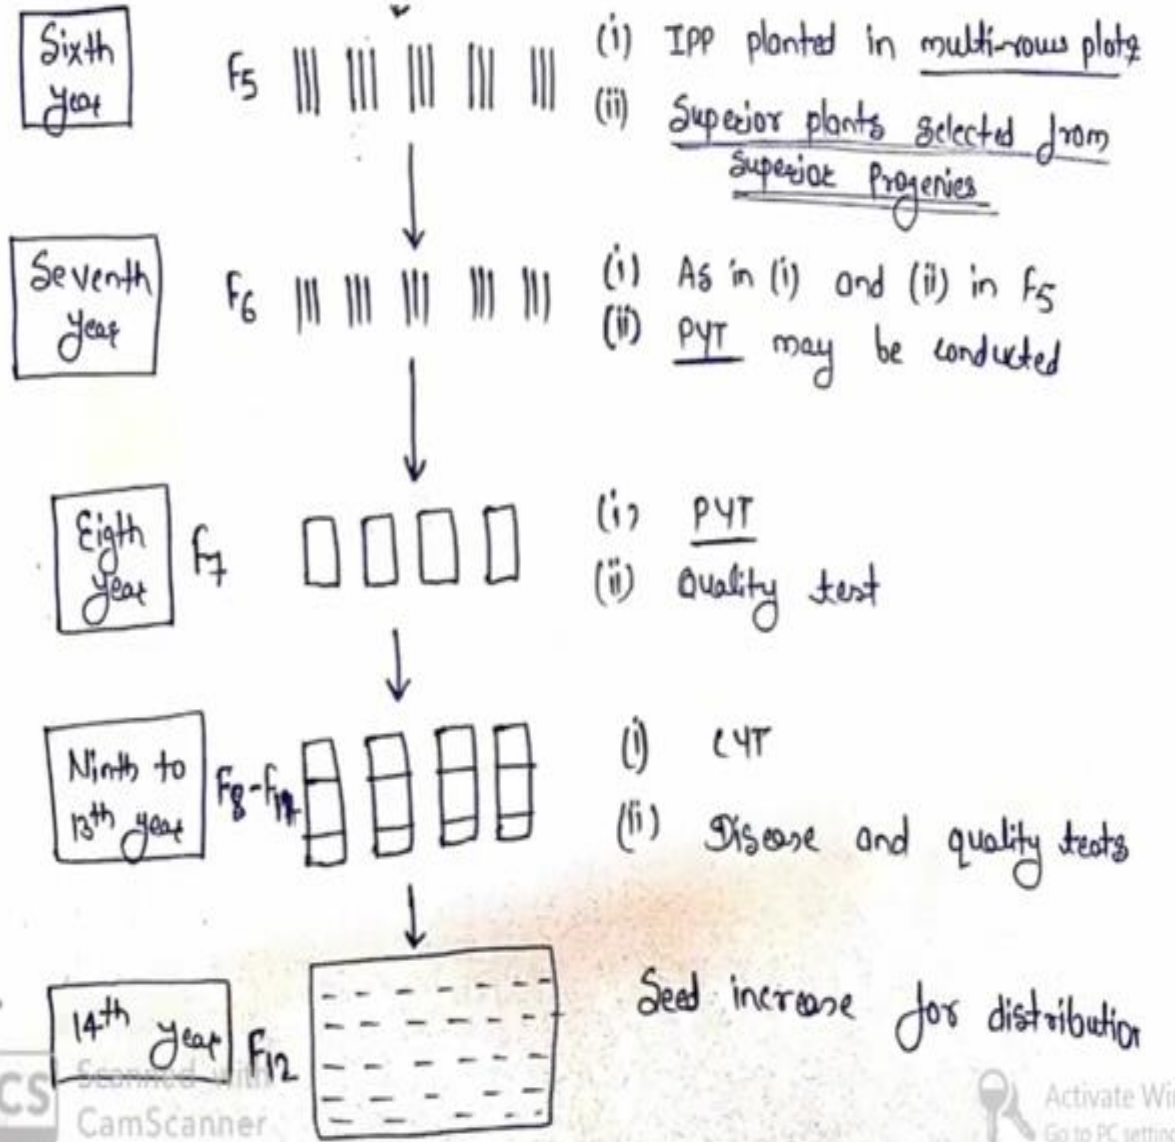 Sixth
year
F5
(i) IPP planted in multi-rows plots
(ii) Superior plants selected from
Superior Progenies
Seventh
year
F6
(i) As in (i) and (ii) in F5
(ii) PYT may be conducted
Eigth
year
F7
(i) PYT
(ii) Quality test
Ninth to
13th year
F8-F12
(i) CYT
(ii) Disease and quality tests
14th
year
F12
Seed increase for distribution
CS
Scanned with
CamScanner
Activate Wi
Go to PC settin